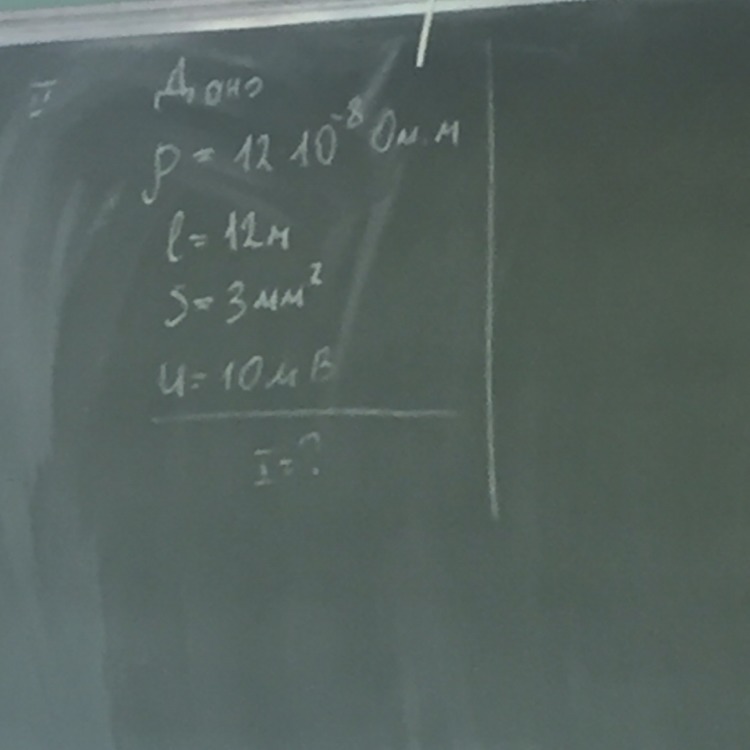 II Дано
ρ = 12 10⁻⁸ Ом·м
l = 12м
S = 3 мм²
U = 10 мВ
I = ?